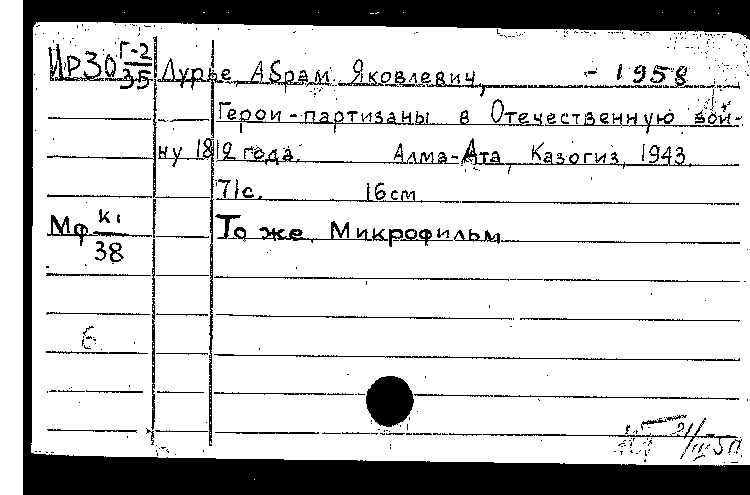 ИР30 Г-2/35 Лурье, Абрам Яковлевич, - 1958
Герои-партизаны в Отечественную вой-
ну 1812 года. Алма-Ата, Казогиз, 1943.
71с. 16см
Мф К1/38 То же. Микрофильм
6
21/III-50